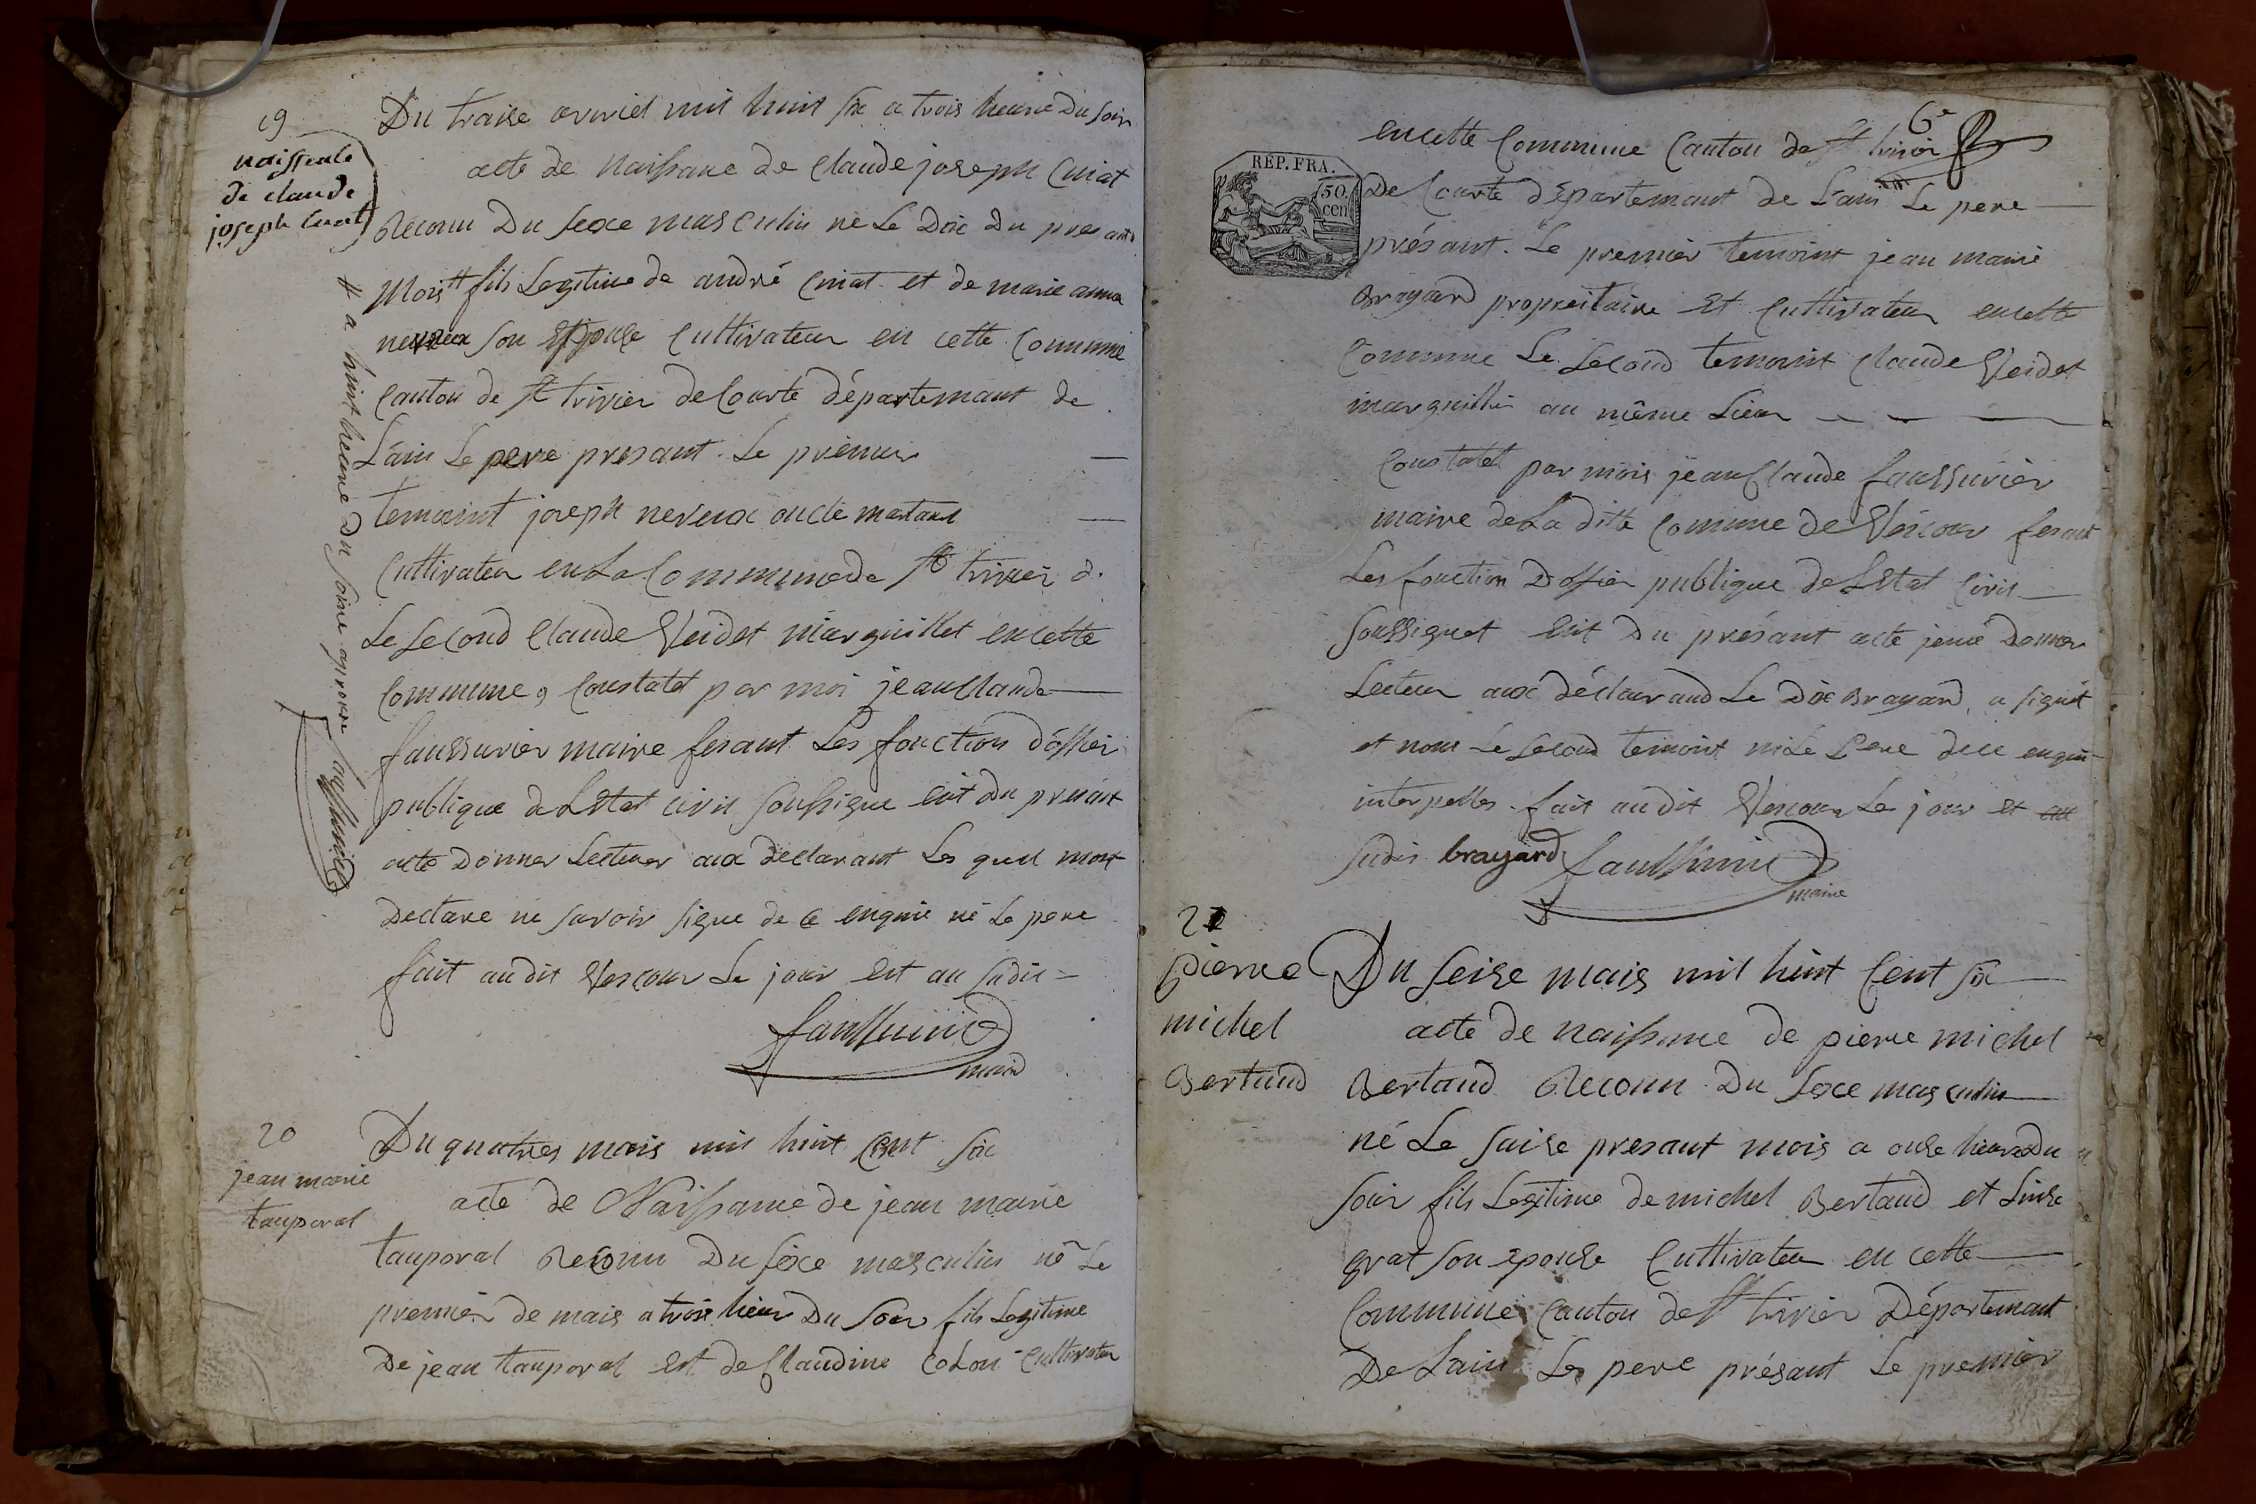 19
naissence
de claude
joseph Cuiat
Du traise avriel mil huit six a trois heure Du soir
acte de Naissance de Claude joseph Cuiat
Reconu Du sexe masculin né Le Dix Du presant
Mois # fils Legitime de andré Cuiat et de marie anna
neveux son Epouse Cultivateur en cette Commune
Canton de St trivier de Courte département de
L'ain Le pere presant. Le premier
temoint joseph neveux oncle
Cultivateur en La Commune de St trivier d.
Le second Claude Veidet marguillet en cette
Commune, Constatet par moi jean Claude
faussurier maire fesant Les fonction d'offier
publique de L'Etat civil soussigne Euit Du presant
acte Donner Lectures aux déclarant Les quel mont
Declare ne savoir signe de ce enquie né Le pere
fait au dit Vescour Le jour est an sudit
faussurier
maire
# a huit heure du soire aprouve faussurier
20
jean marie
tauporal
Du quatres mais mil huit Cent six
acte de Naissance de jean marie
tauporal Reconu Du sexe masculin né Le
premier de mais a trois heur Du soir fils Legitime
De jean tauporal Est de Claudine Colon Cultivater
6e
en cette Commune Canton de St trivier
REP. FRA.
50
cen
De Courte département de L'ain Le pere
présant. Le premier temoint jean marie
Brayard propreitaire Et Cultivateur en cette
Commune Le Second temoint Claude Veidet
marguillier au même Lieu
Constatet par mois jean Claude faussurier
maire de La ditte Comune de Vescour fesant
Les fonction D'offier publique de L'Etat Civil
Soussignet Euit Du présant acte Donner
Lecteur aux déclarand Le Dix Brayard, a signét
et nom Le Second temoint ni Le Pere dece enquis
interpelles. fait au dit Vescour Le jour et an
sudis brayard faussurier
maire
21
pierre
michel
Bertaud
Du Seise mais mil huit Cent six
acte de naissance de pierre michel
Bertaud Reconu Du sexe masculin
né Le saise presant mois a onse heure Du
soir fils Legitime de michel Bertaud et
grat son epouse Cultivateu en cette
Commune Canton de St trivier Département
De Lain Les pere présant Le premier